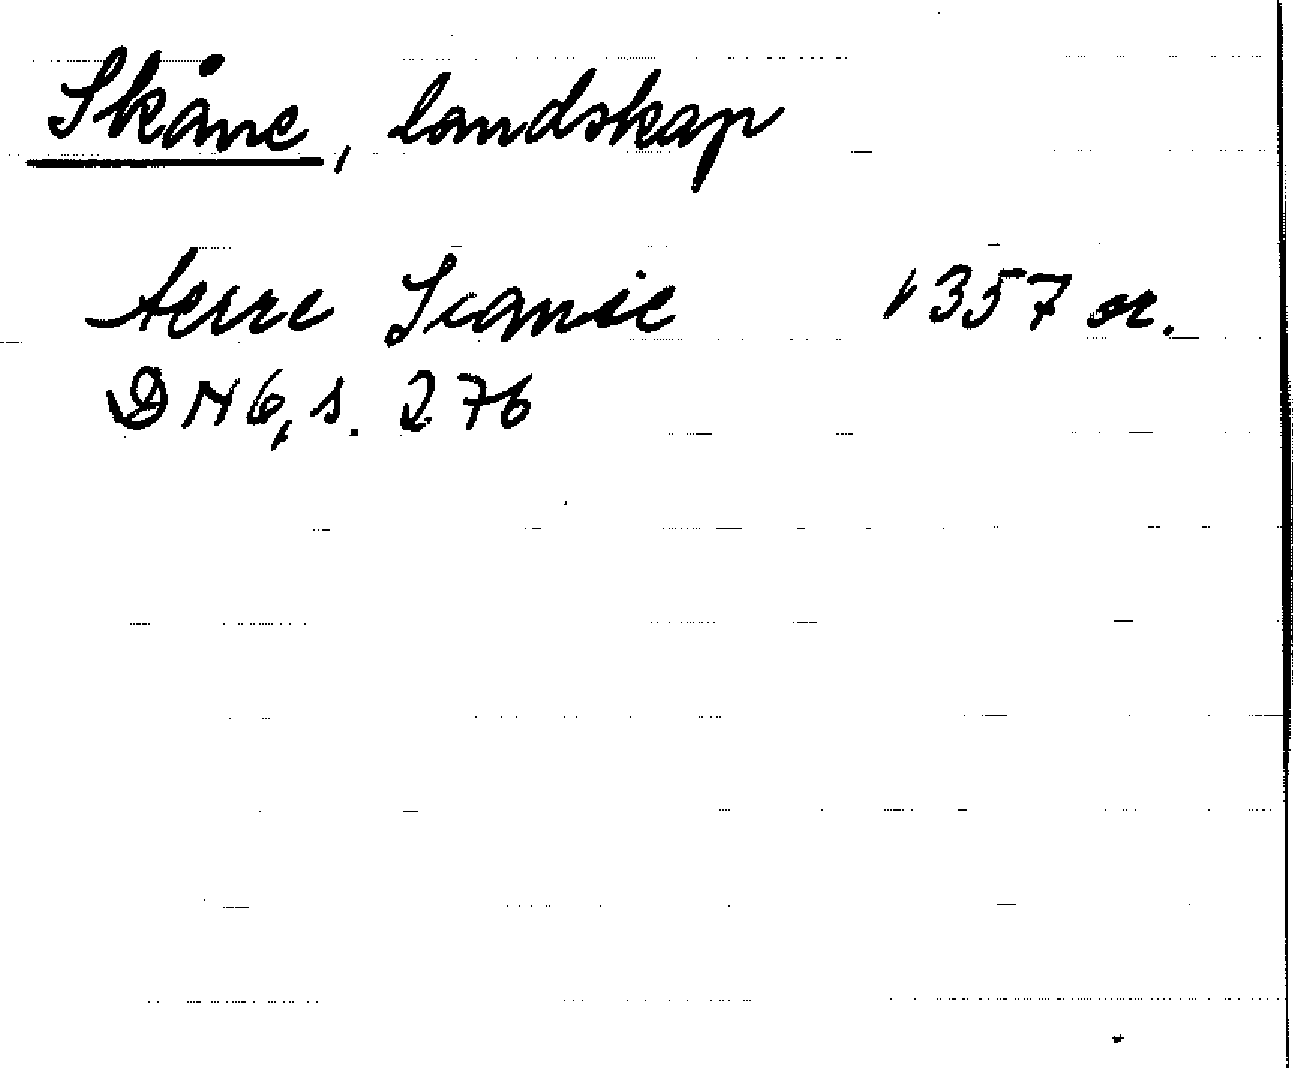 Skåne, landskap
terre Scanie 1357 or.
DN 6, s. 276